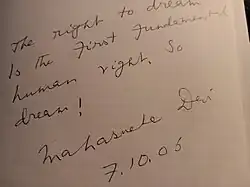 The right to dream
Is the First Fundamental
human right. So
dream!
Mahasweta Devi
7.10.06